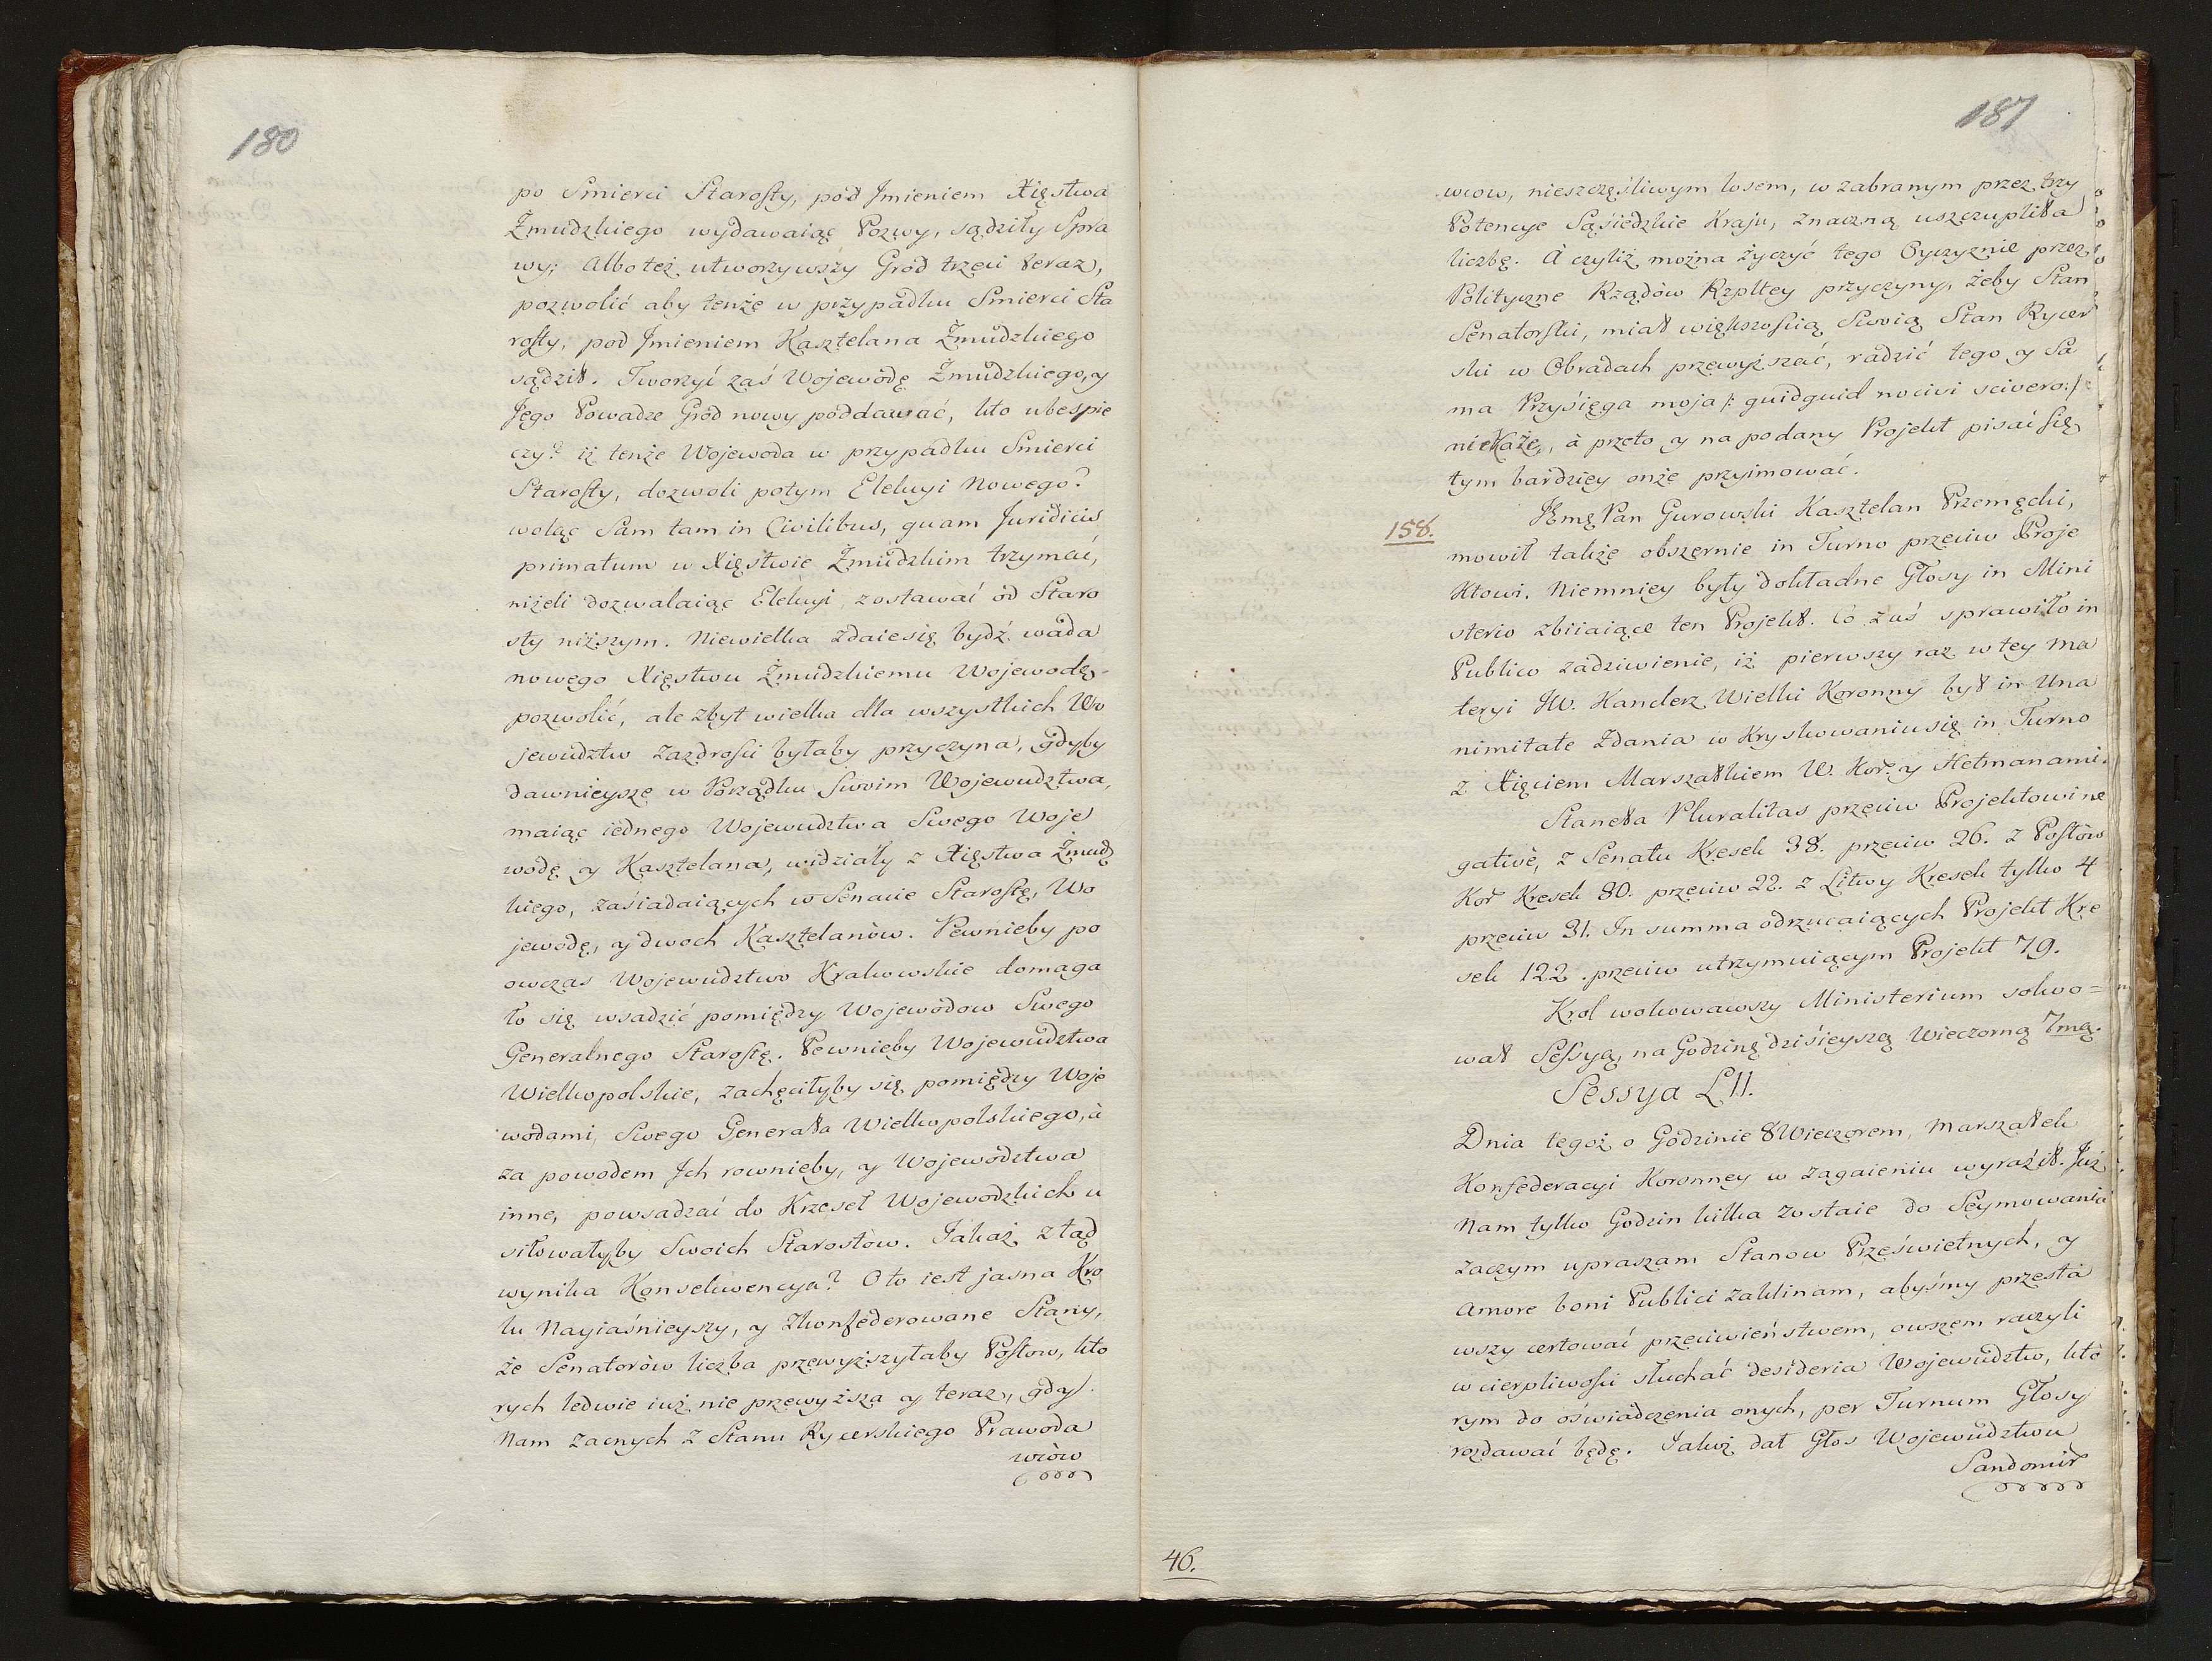 180
po Smierci Starosty, pod Jmieniem Xięstwa
Żmudzkiego wydawaiąc Pozwy, sądziły Spra
wy; Albo też utworzywszy Gród trzeci teraz,
pozwolić aby tenże w przypadku Smierci Sta
rosty, pod Jmieniem Kasztelana Żmudzkiego
sądził. Tworzyć zaś Wojewodę Żmudzkiego, y
Jego Powadze Gród nowy poddawać, kto ubespie
czy? iż tenże Wojewoda w przypadku Smierci
Starosty, dozwoli potym Elekcyi Nowego?
woląc Sam tam in Civilibus, quam Juridicis
primatum w Xięstwie Żmudzkim trzymać,
niżeli dozwalaiąc Elekcyi, zostawać od Staro
sty niższym. Niewielka zdaiesię bydź wada
nowego Xięstwu Żmudzkiemu Wojewodę
pozwolić, ale zbyt wielka dla wszystkich Wo
jewudztw zazdrości byłaby przyczyna, gdyby
dawnieysze w Porządku Swoim Wojewudztwa,
maiąc iednego Wojewudztwa Swego Woje
wodę y Kasztelana, widziały z Xięstwa Żmudz
kiego, zasiadaiących w Senacie Starostę, Wo
jewodę, y dwoch Kasztelanòw. Pewnieby po
owczas Wojewudztwo Krakowskie domaga
ło się wsadzić pomiędzy Wojewodow Swego
Generalnego Starostę. Pewnieby Wojewudztwa
Wielkopolskie, zachęciłyby się pomiędzy Woje
wodami, Swego Generała Wielkopolskiego, à
za powodem Jch rownieby, y Wojewodztwa
inne, powsadzać do Krzeseł Wojewodzkich u
siłowałyby Swoich Starostòw. Jakaż ztąd
wynika Konsekwencya? Oto iest jasna Kro
lu Nayiaśnieyszy, y Zkonfederowane Stany,
że Senatoròw liczba przewyższyłaby Posłow, kto
rych ledwie iuż nie przewyższa y teraz, gdy
Nam zacnych z Stanu Rycerskiego Prawoda
wcòw
187
wcow, nieszczęśliwym losem, w zabranym przez trzy
Potencye Sąsiedzkie Kraju, znaczną uszczupliła
liczbę. A czyliż można życzyć tego Oyczyznie przez
Polityczne Rządòw Rzpltey przyczyny, żeby Stan
Senatorski, miał większością Swoią Stan Rycer
ski w Obradach przewyższać, radzić tego y Sa
ma Przysięga moja /: quidquid nocivi scivero :/
nieKaże, à przeto y na podany Projekt pisać się,
tym bardziey onże przyimować.
158.
Jmę Pan Gurowski Kasztelan Przemęcki,
mowił także obszernie in Turno przeciw Proje
ktowi. Niemniey były dokładne Głosy in Mini
sterio zbiiaiące ten Projekt. Co zaś sprawiło in
Publico zadziwienie, iż pierwszy raz w tey ma
teryi JW. Kanclerz Wielki Koronny był in Una
nimitate Zdania w Kryskowaniu się in Turno
z Xięciem Marszałkiem W. Kor: y Hetmanami.
Staneła Pluralitas przeciw Projektowi ne
gativè, z Senatu Kresek 38. przeciw 26. z Posłòw
Kor Kresek 80. przeciw 22. z Litwy Kresek tylko 4
przeciw 31. In summa odrzucaiących Projekt Kre
sek 122. przeciw utrzymuiącym Projekt 79.
Krol wokowawszy Ministerium solwo=
wał Sessyą, na Godzinę dzisieyszą Wieczorną 7mą.
Sessya LII.
Dnia tegoż o Godzinie 8 Wieczorem, Marszałek
Konfederacyi Koronney w zagaieniu wyraźił. Już
Nam tylko Godzin kilka zostaie do Seymowania
zaczym upraszam Stanow Prześwietnych, y
amore boni Publici zaklinam, abyśmy przesta
wszy certować przeciwieństwem, owszem raczyli
w cierpliwości słuchać desideria Wojewudztw, któ
rym do oświadczenia onych, per Turnum Głosy
rozdawać będę. Jakoż dał Głos Wojewudztwu
Sandomir
46.